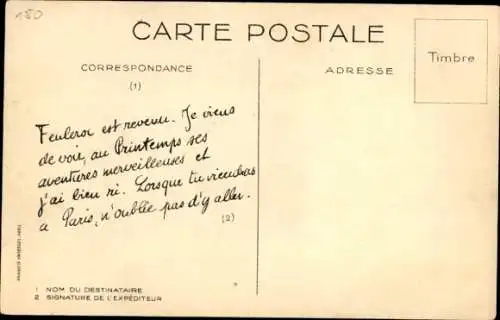 150
CARTE POSTALE
Timbre
CORRESPONDANCE
ADRESSE
(1)
est revenu. Je viens
de voir, au Printemps ses
aventures merveilleuses et
j'ai bien ri. Lorsque tu viendras
a Paris, n'oublie pas d'y aller.
(2)
1 NOM DU DESTINATAIRE
2 SIGNATURE DE L'EXPÉDITEUR